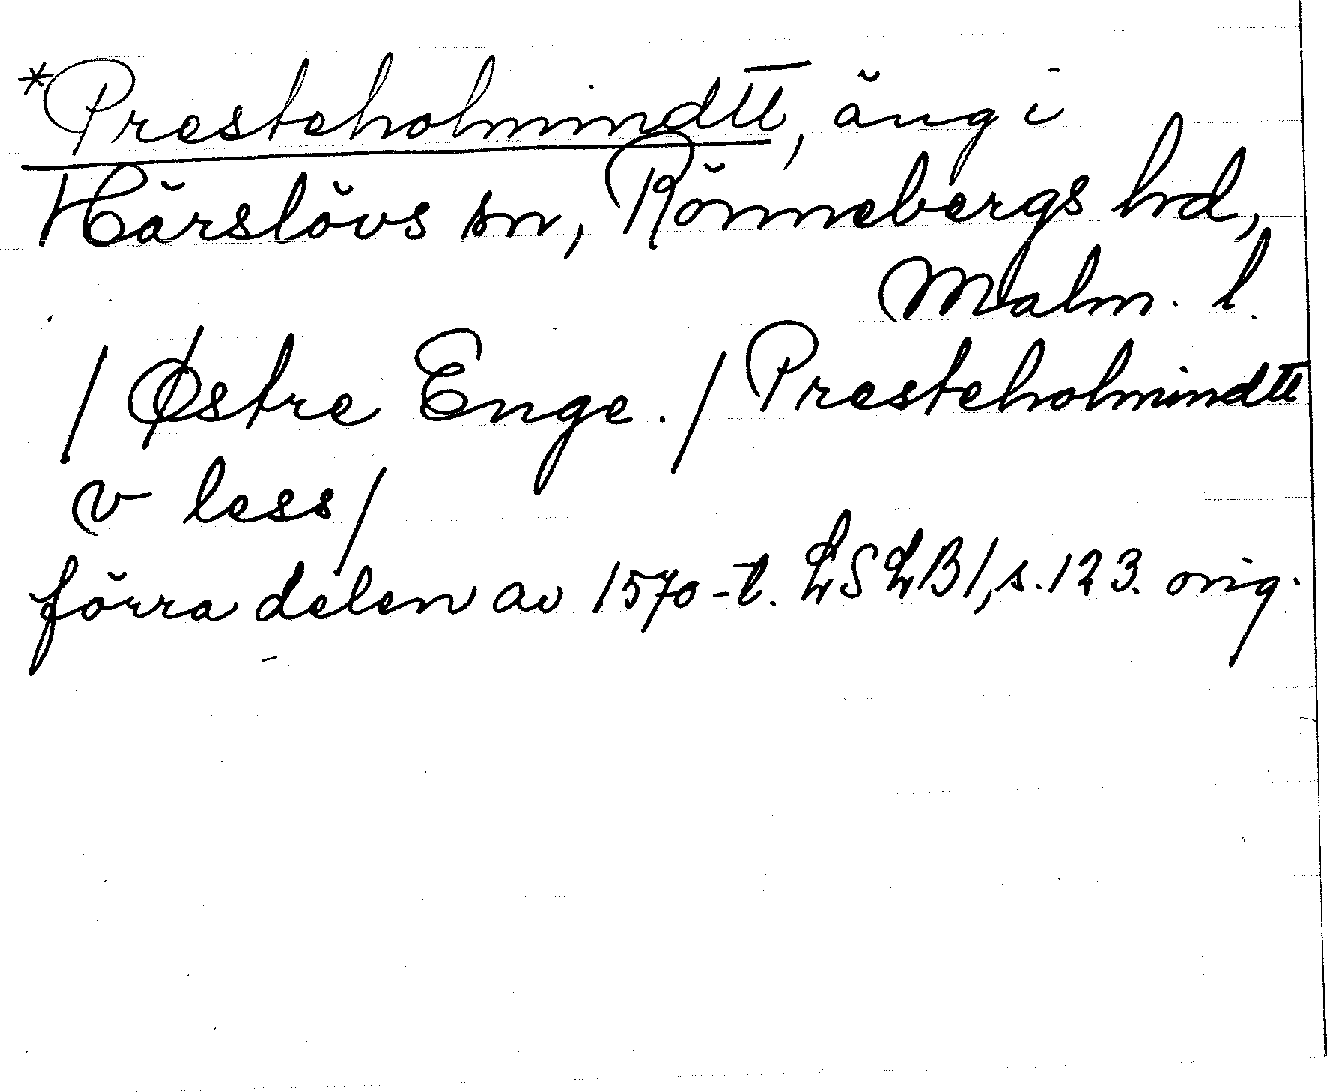 *Presteholmindtt, äng i
Härslövs sn, Rönnebergs hd,
Malm. l.
/ Østre Enge. / Presteholmindtt
v less /
förra delen av 1570-t. LSLB 1, s. 123. orig.